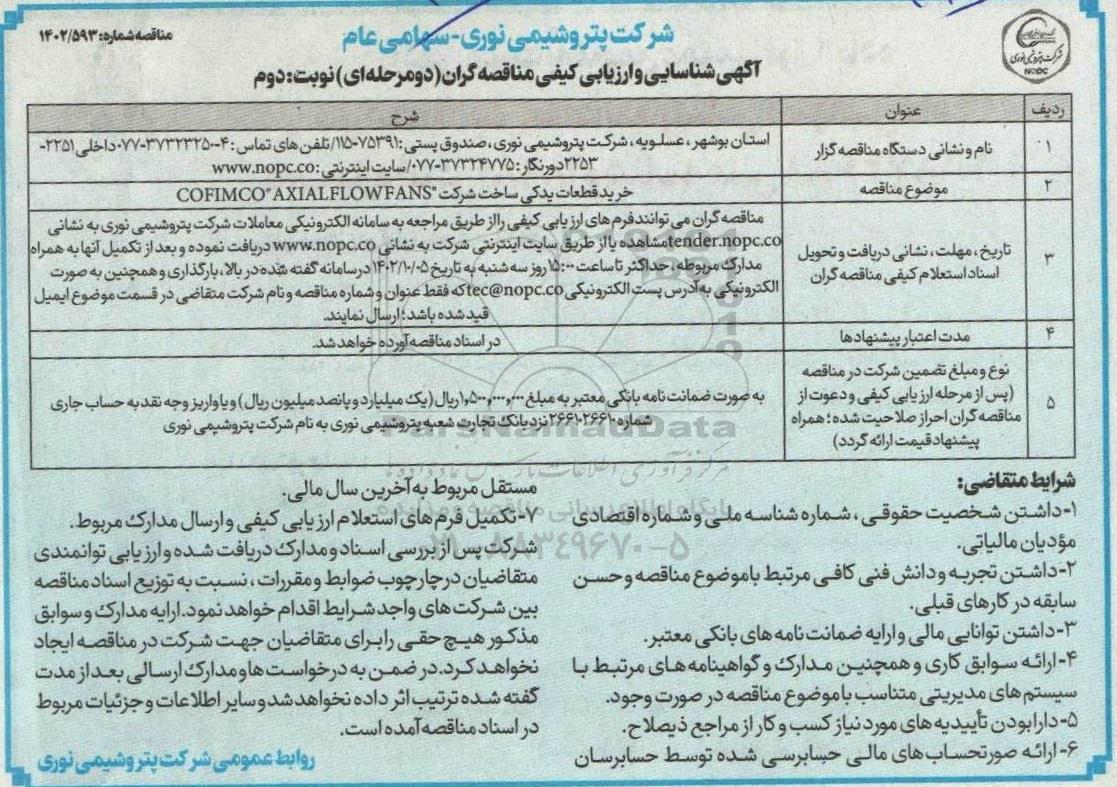 مناقصه شماره: ۱۴۰۲/۵۹۳
شرکت پتروشیمی نوری-سهامی عام
شرکت پتروشیمی نوری
NOPC
آگهی شناسایی و ارزیابی کیفی مناقصه گران (دو مرحله ای) نوبت: دوم
ردیف عنوان شرح
۱ نام و نشانی دستگاه مناقصه گزار
استان بوشهر، عسلویه، شرکت پتروشیمی نوری، صندوق پستی: ۷۵۳۹۱-۱۱۵/تلفن های تماس: ۴-۰۷۷-۳۷۳۲۳۲۵۰داخلی ۲۲۵۱-
۲۲۵۳ دورنگار: ۰۷۷-۳۷۳۲۴۷۷۵/سایت اینترنتی: www.nopc.co
۲ موضوع مناقصه
خرید قطعات یدکی ساخت شرکت "COFIMCO" AXIAL FLOW FANS
۳ تاریخ، مهلت، نشانی دریافت و تحویل
اسناد استعلام کیفی مناقصه گران
مناقصه گران می توانند فرم های ارزیابی کیفی را از طریق مراجعه به سامانه الکترونیکی معاملات شرکت پتروشیمی نوری به نشانی
tender.nopc.co مشاهده یا از طریق سایت اینترنتی شرکت به نشانی www.nopc.co دریافت نموده و بعد از تکمیل آنها به همراه
مدارک مربوطه، حداکثر تا ساعت ۱۵:۰۰ روز سه شنبه به تاریخ ۱۴۰۲/۱۰/۰۵ در سامانه گفته شده در بالا، بارگذاری و همچنین به صورت
الکترونیکی به آدرس پست الکترونیکی tec@nopc.co که فقط عنوان و شماره مناقصه و نام شرکت متقاضی در قسمت موضوع ایمیل
قید شده باشد؛ ارسال نمایند.
۴ مدت اعتبار پیشنهادها
در اسناد مناقصه آورده خواهد شد.
۵ نوع و مبلغ تضمین شرکت در مناقصه
(پس از مرحله ارزیابی کیفی و دعوت از
مناقصه گران احراز صلاحیت شده؛ همراه
پیشنهاد قیمت ارائه گردد)
به صورت ضمانت نامه بانکی معتبر به مبلغ ۱,۵۰۰,۰۰۰,۰۰۰ریال (یک میلیارد و پانصد میلیون ریال) و یا واریز وجه نقد به حساب جاری
شماره ۲۶۶۱۰۲۶۶۱۰ نزد بانک تجارت شعبه پتروشیمی نوری به نام شرکت پتروشیمی نوری
ParsNamadData
مرکز فرآوری اطلاعات پارس نماد داده ها
پایگاه اطلاع رسانی مناقصه و مزایده
۰۲۱-۸۸۳۴۹۶۷۰-۵
شرایط متقاضی:
۱-داشتن شخصیت حقوقی، شماره شناسه ملی و شماره اقتصادی
مؤدیان مالیاتی.
۲-داشتن تجربه و دانش فنی کافی مرتبط با موضوع مناقصه و حسن
سابقه در کارهای قبلی.
۳-داشتن توانایی مالی و ارایه ضمانت نامه های بانکی معتبر.
۴-ارائه سوابق کاری و همچنین مدارک و گواهینامه های مرتبط با
سیستم های مدیریتی متناسب با موضوع مناقصه در صورت وجود.
۵-دارا بودن تأییدیه های مورد نیاز کسب و کار از مراجع ذیصلاح.
۶-ارائه صورتحساب های مالی حسابرسی شده توسط حسابرسان
مستقل مربوط به آخرین سال مالی.
۷-تکمیل فرم های استعلام ارزیابی کیفی و ارسال مدارک مربوط.
شرکت پس از بررسی اسناد و مدارک دریافت شده و ارزیابی توانمندی
متقاضیان در چارچوب ضوابط و مقررات، نسبت به توزیع اسناد مناقصه
بین شرکت های واجد شرایط اقدام خواهد نمود. ارایه مدارک و سوابق
مذکور هیچ حقی را برای متقاضیان جهت شرکت در مناقصه ایجاد
نخواهد کرد. در ضمن به درخواست ها و مدارک ارسالی بعد از مدت
گفته شده ترتیب اثر داده نخواهد شد و سایر اطلاعات و جزئیات مربوط
در اسناد مناقصه آمده است.
روابط عمومی شرکت پتروشیمی نوری